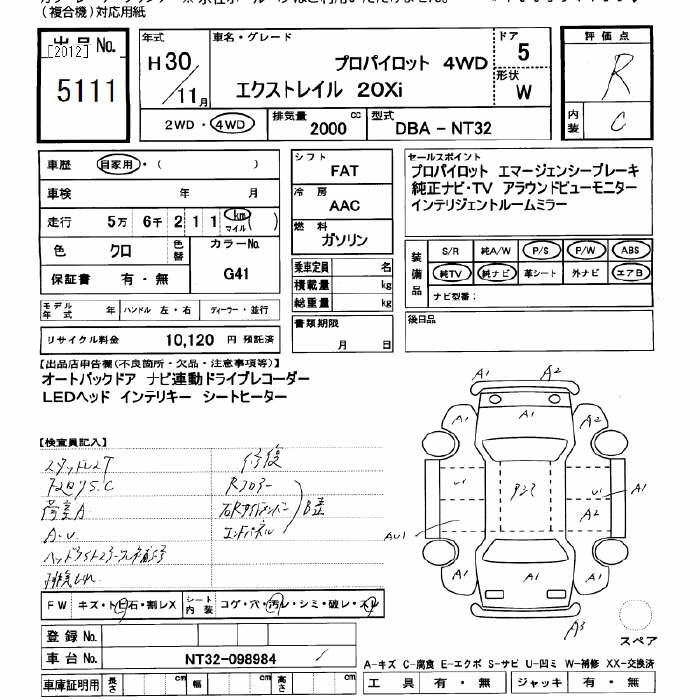 (複合機)対応用紙
出品No.
[2012]
5111
年式
H30/11月
車名・グレード
プロパイロット 4WD
エクストレイル 20Xi
ドア
5
形状
W
2WD・4WD
排気量
2000 cc
型式
DBA - NT32
評価点
R
内装
C
車歴 自家用・( )
車検 年 月
走行 5万 6千 2 1 1 km マイル ( )
色 クロ 色替
カラーNo.
G41
保証書 有・無
モデル年式 年 ハンドル 左・右 ディーラー・並行
リサイクル料金 10,120 円 預託済
シフト
FAT
冷房
AAC
燃料
ガソリン
乗車定員 名
積載量 kg
総重量 kg
書類期限
月 日
セールスポイント
プロパイロット エマージェンシーブレーキ
純正ナビ・TV アラウンドビューモニター
インテリジェントルームミラー
装備品
S/R 純A/W P/S P/W ABS
純TV 純ナビ 革シート 外ナビ エアB
ナビ型番:
後日品
【出品店申告欄(不良箇所・欠品・注意事項等)】
オートバックドア ナビ連動ドライブレコーダー
LEDヘッド インテリキー シートヒーター
【検査員記入】
修復
A.U
エンドパネル
FW キズ・トビ石・割レX
シート内装 コゲ・穴・汚レ・シミ・破レ・スレ
登録No.
車台No. NT32-098984
車庫証明用 長さ cm 幅 cm 高さ cm
A1
A2
A1
A1
A1
U1
U1
A1
A2
AU1
A1
A1
A3
スペア
A-キズ C-腐食 E-エクボ S-サビ U-凹ミ W-補修 XX-交換済
工具 有・無 ジャッキ 有・無